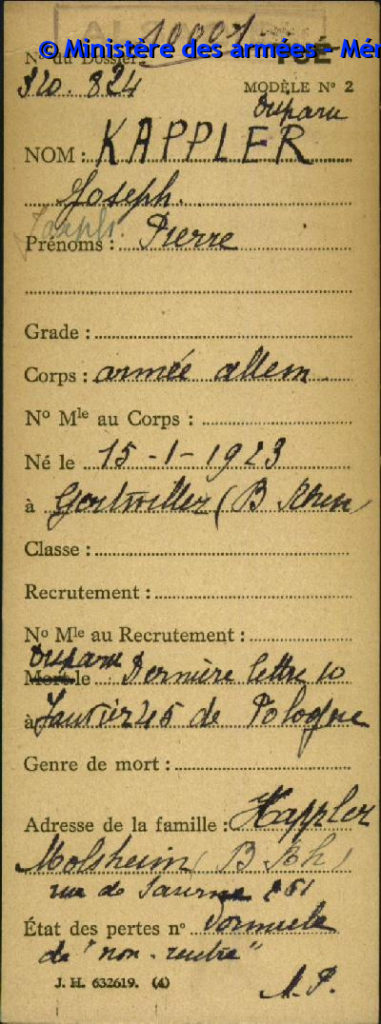 10007
© Ministère des armées - Mém
N° du Dossier
TUÉ
320.824
MODÈLE N° 2
Disparu
NOM : KAPPLER
Joseph.
Joseph.
Prénoms : Pierre
Grade :
Corps : armée allem
N° Mle au Corps :
Né le 15-1-1923
à Gertwiller (B Rhin)
Classe :
Recrutement :
N° Mle au Recrutement :
Disparu
Mort le Dernière lettre 10
à Janvier 45 de Pologne
Genre de mort :
Adresse de la famille : Kappler
Molsheim (B Rh)
rue de Saverne 251
État des pertes n° Formule
de "non-rentré"
J. H. 632619. (4)
A.P.